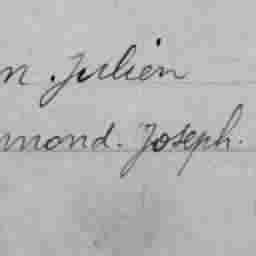 n. Julien
mond. Joseph.